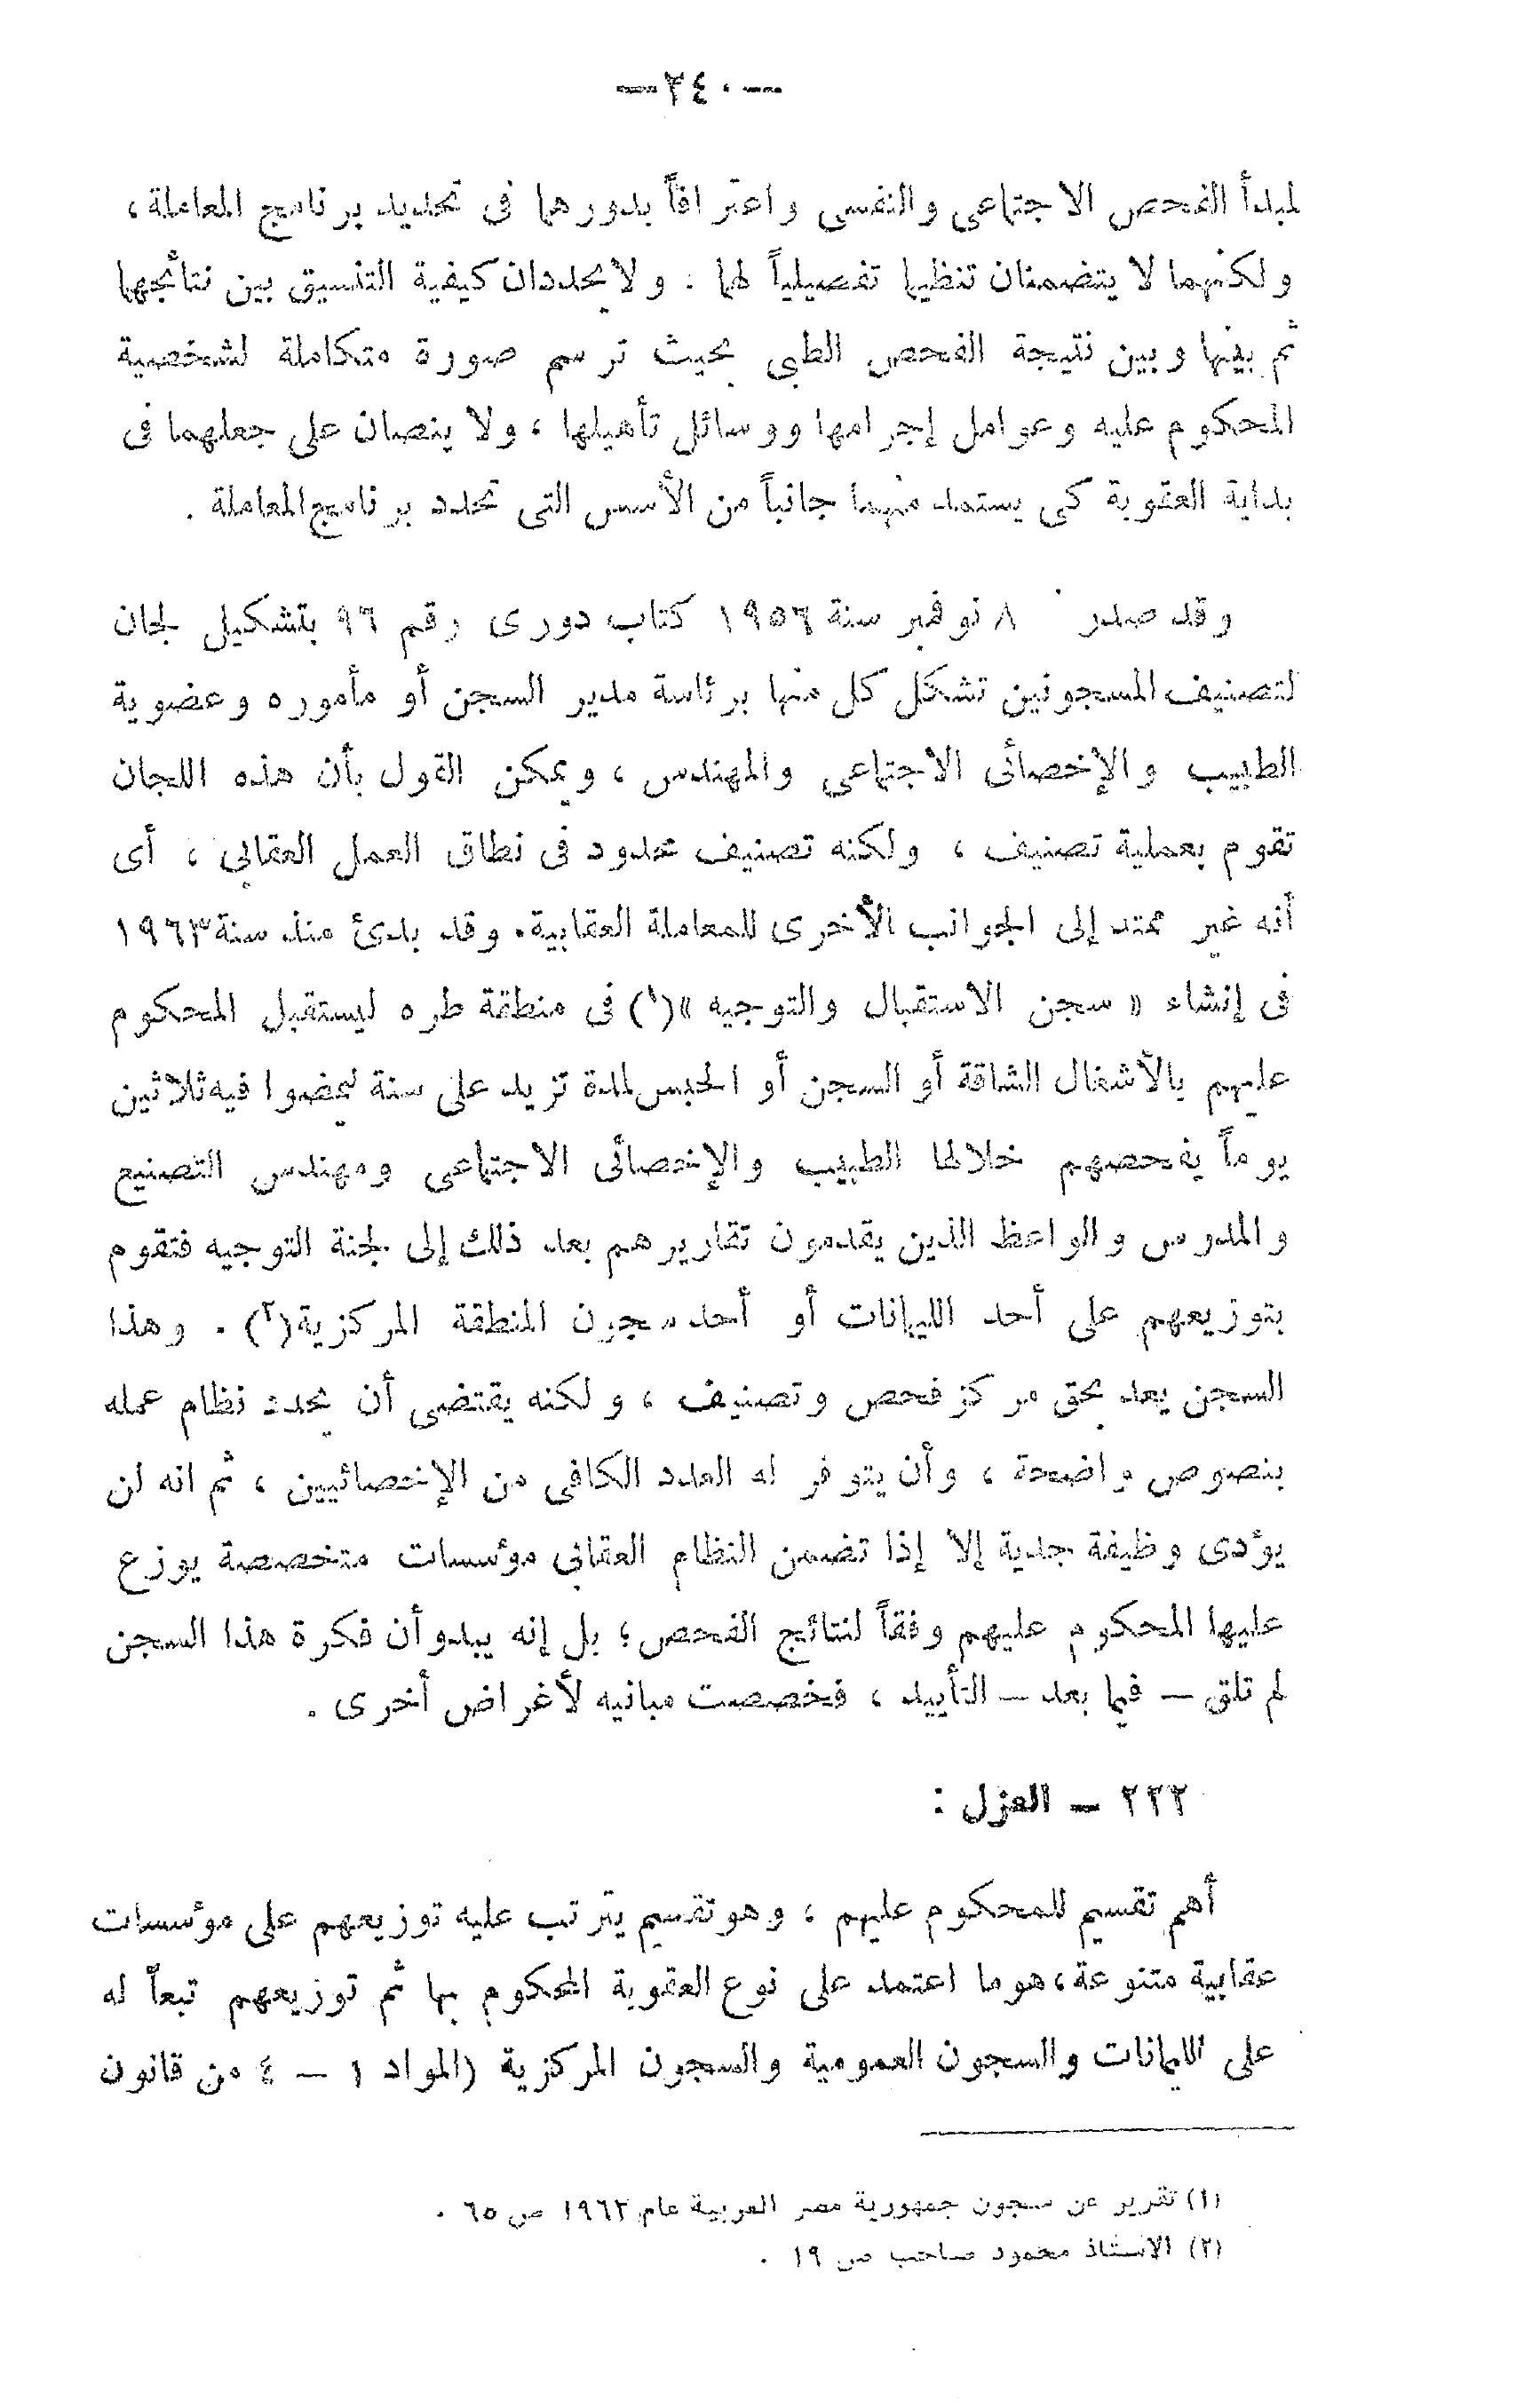 —٢٤٠—
لمبدأ الفحص الاجتماعى والنفسى واعترافاً بدورهما فى تحديد برنامج المعاملة ،
ولكنهما لا يتضمنان تنظيما تفصيلياً لهما . ولا يحددان كيفية التنسيق بين نتائجهما
ثم بينها وبين نتيجة الفحص الطبى بحيث ترسم صورة متكاملة لشخصية
المحكوم عليه وعوامل إجرامها ووسائل تأهيلها ، ولا ينصان على جعلهما فى
بداية العقوبة كى يستمد منهما جانباً من الأسس التى تحدد برنامج المعاملة .
وقد صدر ٨ نوفمبر سنة ١٩٥٦ كتاب دورى رقم ٩٦ بتشكيل لجان
لتصنيف المسجونين تشكل كل منها برئاسة مدير السجن أو مأموره وعضوية
الطبيب والإخصائى الاجتماعى والمهندس ، ويمكن القول بأن هذه اللجان
تقوم بعملية تصنيف ، ولكنه تصنيف محدود فى نطاق العمل العقابى ، أى
أنه غير ممتد إلى الجوانب الأخرى للمعاملة العقابية . وقد بدئ منذ سنة ١٩٦٣
فى إنشاء « سجن الاستقبال والتوجيه »(١) فى منطقة طره ليستقبل المحكوم
عليهم بالأشغال الشاقة أو السجن أو الحبس لمدة تزيد على سنة ليمضوا فيه ثلاثين
يوماً يفحصهم خلالها الطبيب والإخصائى الاجتماعى ومهندس التصنيع
والمدرس والواعظ الذين يقدمون تقاريرهم بعد ذلك إلى لجنة التوجيه فتقوم
بتوزيعهم على أحد الليمانات أو أحد سجون المنطقة المركزية(٢) . وهذا
السجن يعد بحق مركز فحص وتصنيف ، ولكنه يقتضى أن يحدد نظام عمله
بنصوص واضحة ، وأن يتوفر له العدد الكافى من الإخصائيين ، ثم انه لن
يؤدى وظيفة جدية إلا إذا تضمن النظام العقابى مؤسسات متخصصة يوزع
عليها المحكوم عليهم وفقاً لنتائج الفحص ؛ بل إنه يبدو أن فكرة هذا السجن
لم تلق — فيما بعد — التأييد ، فخصصت مبانيه لأغراض أخرى .
٢٢٢ — العزل :
أهم تقسيم للمحكوم عليهم ، وهو تقسيم يترتب عليه توزيعهم على مؤسسات
عقابية متنوعة ، هو ما اعتمد على نوع العقوبة المحكوم بها ثم توزيعهم تبعاً له
على الليمانات والسجون العمومية والسجون المركزية (المواد ١ — ٤ من قانون
(١) تقرير عن سجون جمهورية مصر العربية عام ١٩٦٢ ص ٦٥ .
(٢) الاستاذ محمود صاحب ص ١٩ .